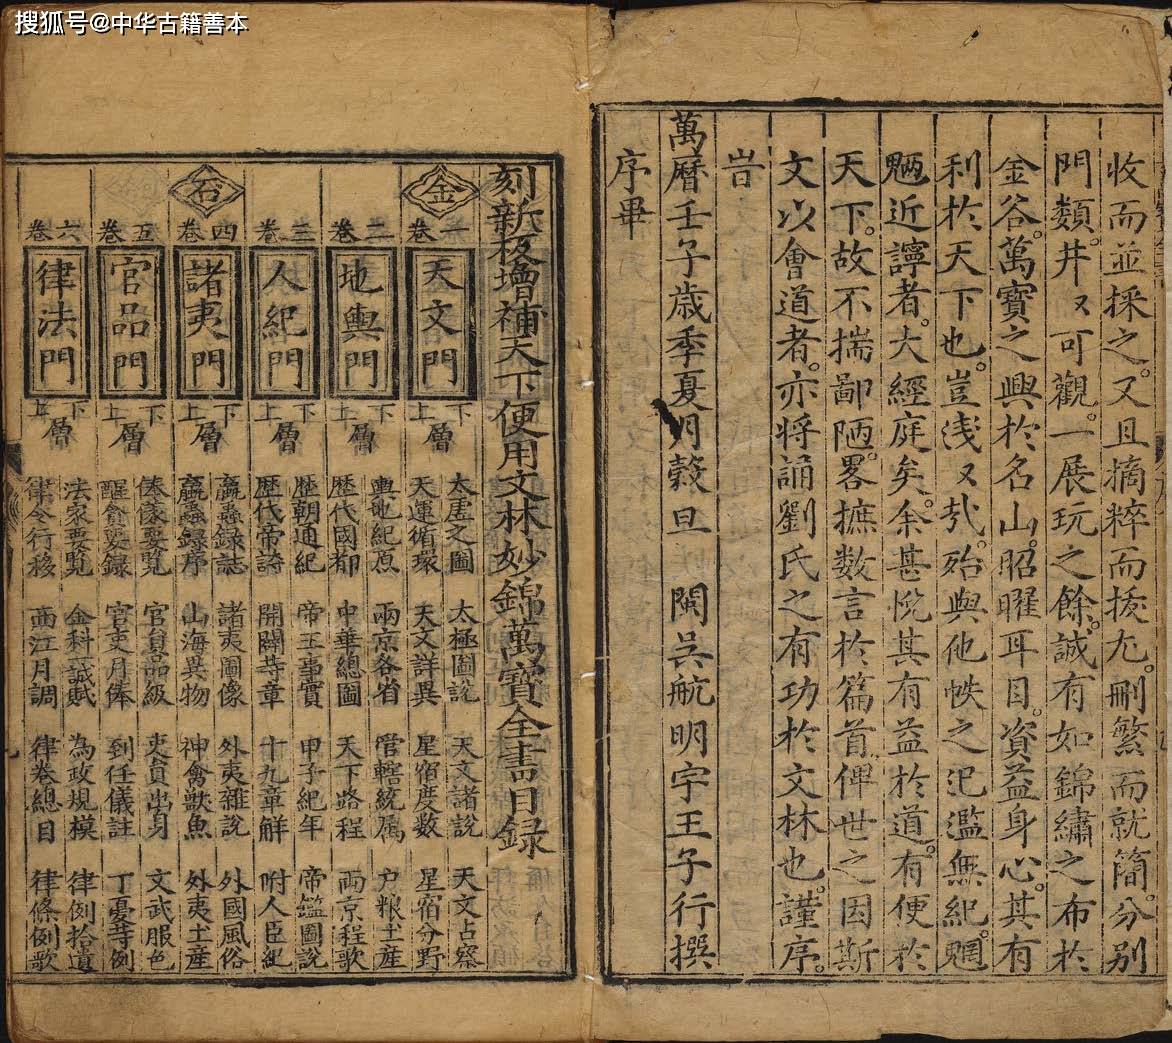 搜狐号@中华古籍善本
收而並採之又且摘粹而拔尤。刪繁而就簡。分别
門類。井〻可觀。一展玩之餘。誠有如錦繡之布於
金谷。萬寶之興於名山。昭曜耳目。資益身心。其有
利於天下也。豈淺〻㢤。殆與他帙之汜濫無紀。魍
魎近諢者。大經庭矣。余甚悅其有益於道。有便於
天下。故不揣鄙陋。畧摭数言於篇首。俾世之因斯
文以會道者。亦将誦劉氏之有功於文林也。謹序。
旹
萬曆壬子歳季夏月穀旦 閩吳航明宇王子行撰
序畢
刻新板增補天下便用文林妙錦萬寶全書目録
金
一卷 天文門 上下層
太虛之圖 太極圖說 天文諸說 天文占察
天運循環 天文詳異 星宿度数 星宿分野
二卷 地輿門 上下層
輿地紀原 兩京各省 管轄統属 户粮土産
歴代國都 中華總圖 天下路程 両京程歌
三卷 人紀門 上下層
歴朝通紀 帝王事實 甲子紀年 帝鑑圖說
歴代帝誇 開闢芽章 十九章觧 附人臣紀
石
四卷 諸夷門 上下層
蠃蟲録誌 諸夷圖像 外夷雜說 外國風俗
蠃蟲録序 山海異物 神禽獸魚 外夷土産
五卷 官品門 上下層
俸家要覧 官員品級 吏員出身 文武服色
醒貪要録 官吏月俸 到任儀註 丁憂芽例
六卷 律法門 上下層
法家要覧 金科誠賦 為政規模 律例拾遺
律令行移 西江月調 律卷總目 律條例歌